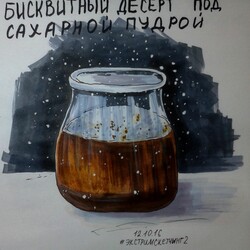 БИСКВИТНЫЙ ДЕСЕРТ ПОД
САХАРНОЙ ПУДРОЙ
12.10.16
#ЭКСТРИМСКЕТЧИНГ2